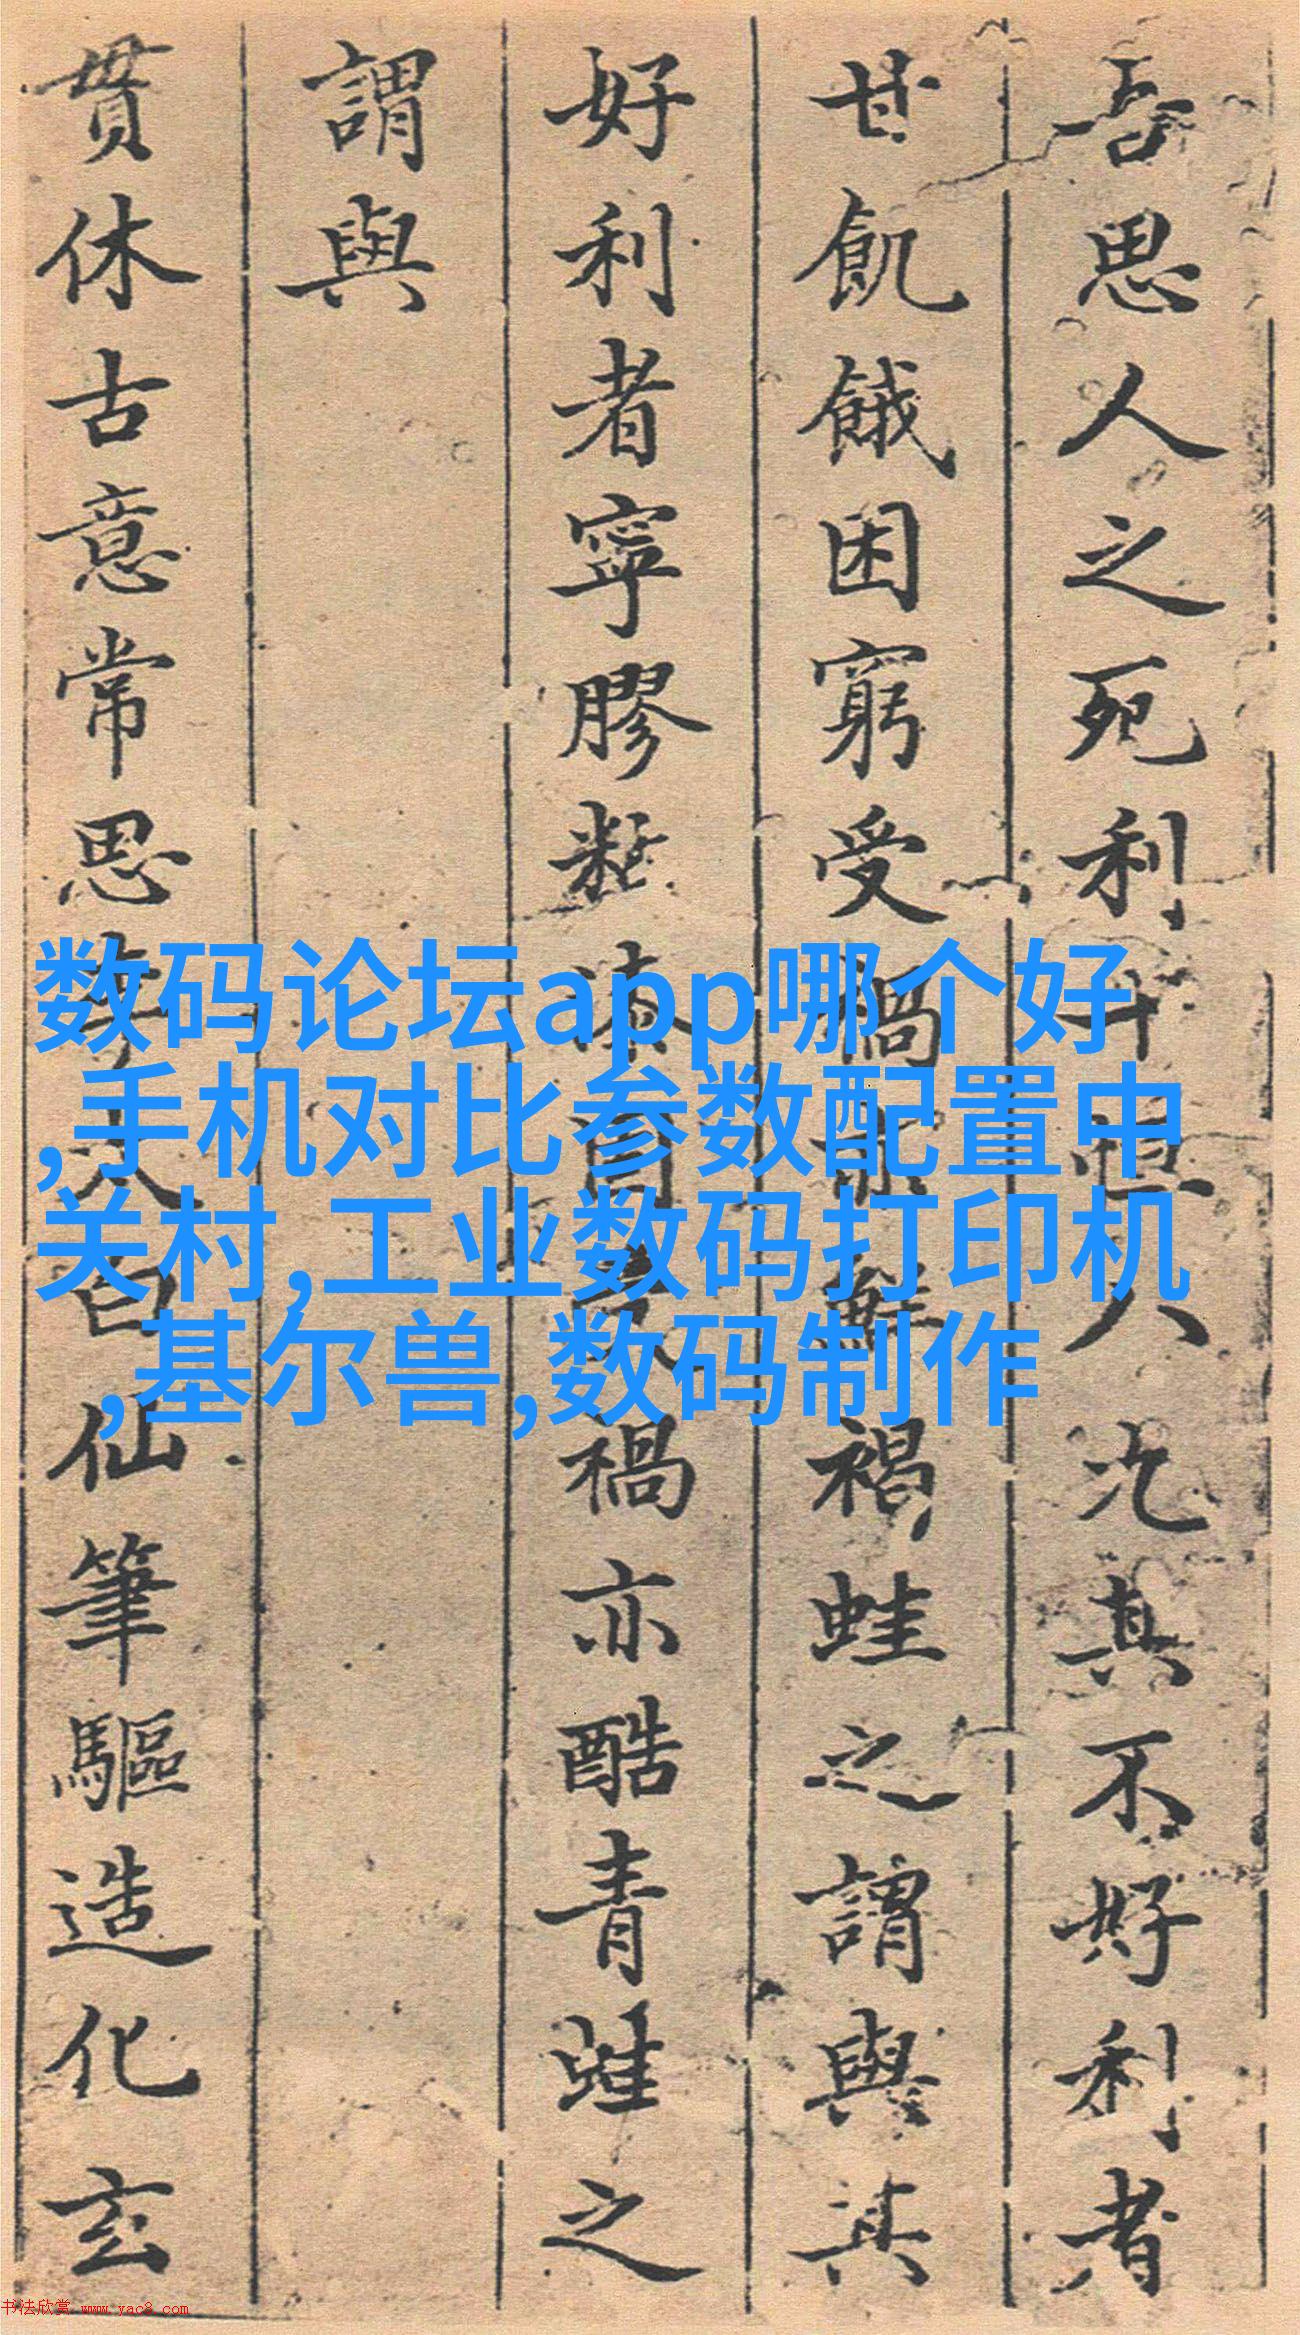 吾思人之死利十
八况其不好利者
甘飢餓困窮受禍
褐蛙之謂與其
好利者寧膠
禍亦酷青蛙之
謂與
贯休古意常思李太白仙筆驅造化玄
数码论坛app哪个好
,手机对比参数配置中
关村,工业数码打印机
,基尔兽,数码制作
书法欣赏 www.yac8.com